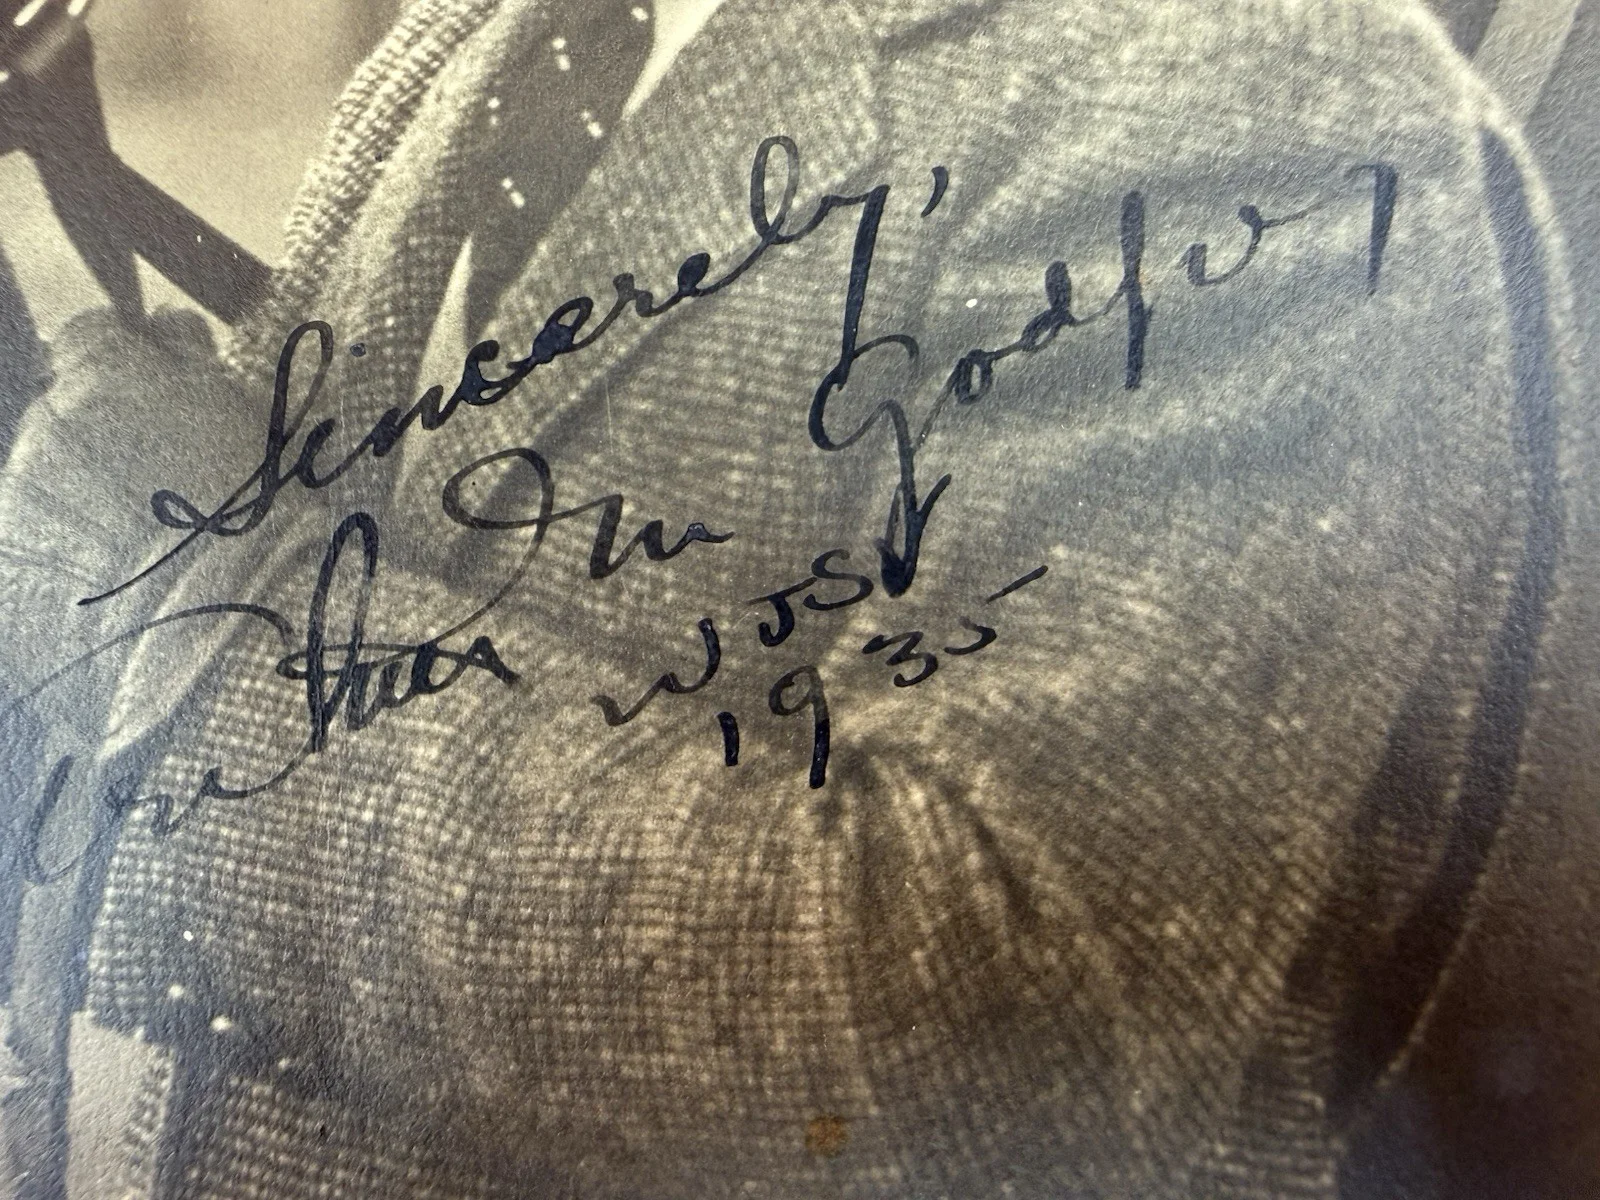 Sincerely,
Arthur M Godfrey
WJSV
1935